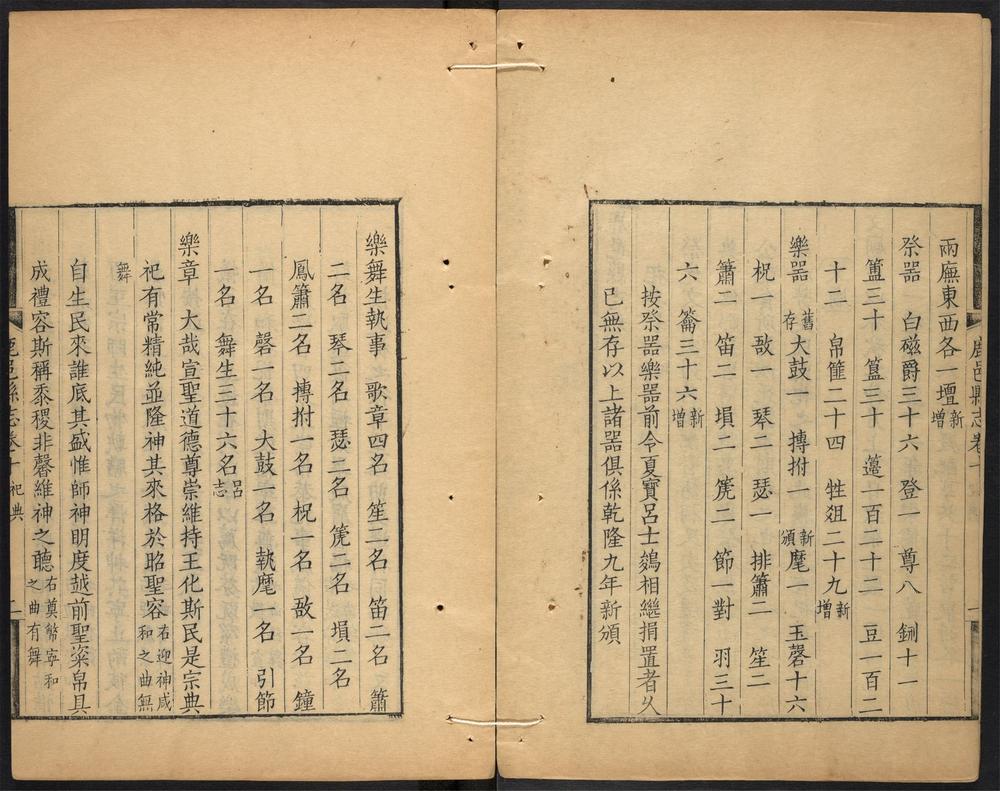 兩廡東西各一壇新增
祭器 白磁爵三十六 登一 尊八 鉶十一
簠三十 簋三十 籩一百二十二 豆一百二
十二 帛篚二十四 牲俎二十九新增
樂器舊存大鼓一 搏拊一新頒麾一 玉磬十六
柷一 敔一 琴二 瑟一 排簫二 笙二
簫二 笛二 塤二 箎二 節一對 羽三十
六 籥三十六新增
按祭器樂器前令夏賓呂士鵕相繼捐置者久
已無存以上諸器俱係乾隆九年新頒
鹿邑縣志卷
樂舞生執事 歌章四名 笙二名 笛二名 簫
二名 琴二名 瑟二名 箎二名 塤二名
鳳簫二名 搏拊一名 柷一名 敔一名 鐘
一名 磬一名 大鼓一名 執麾一名 引節
一名 舞生三十六名呂志
樂章 大哉宣聖道德尊崇維持王化斯民是宗典
祀有常精純並隆神其來格於昭聖容右迎神咸和之曲無
舞
自生民來誰底其盛惟師神明度越前聖粢帛具
成禮容斯稱黍稷非馨維神之聽右奠幣寧和之曲有舞
鹿邑縣志卷十 祀典 二